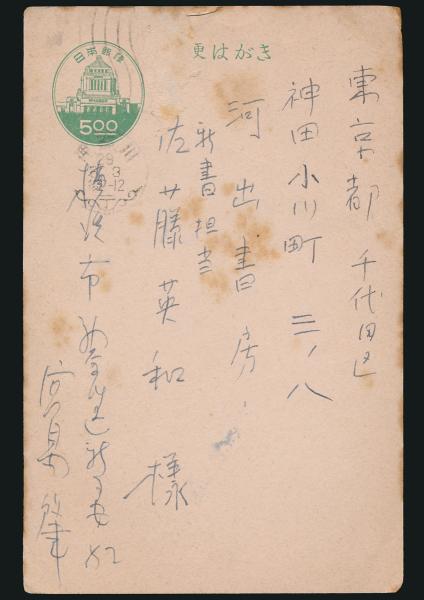 更はがき
日本郵便
5.00
東京都 千代田区
神田小川町 三ノ八
河出書房
新書担当
佐藤英和 様
29
3
-12
横浜市